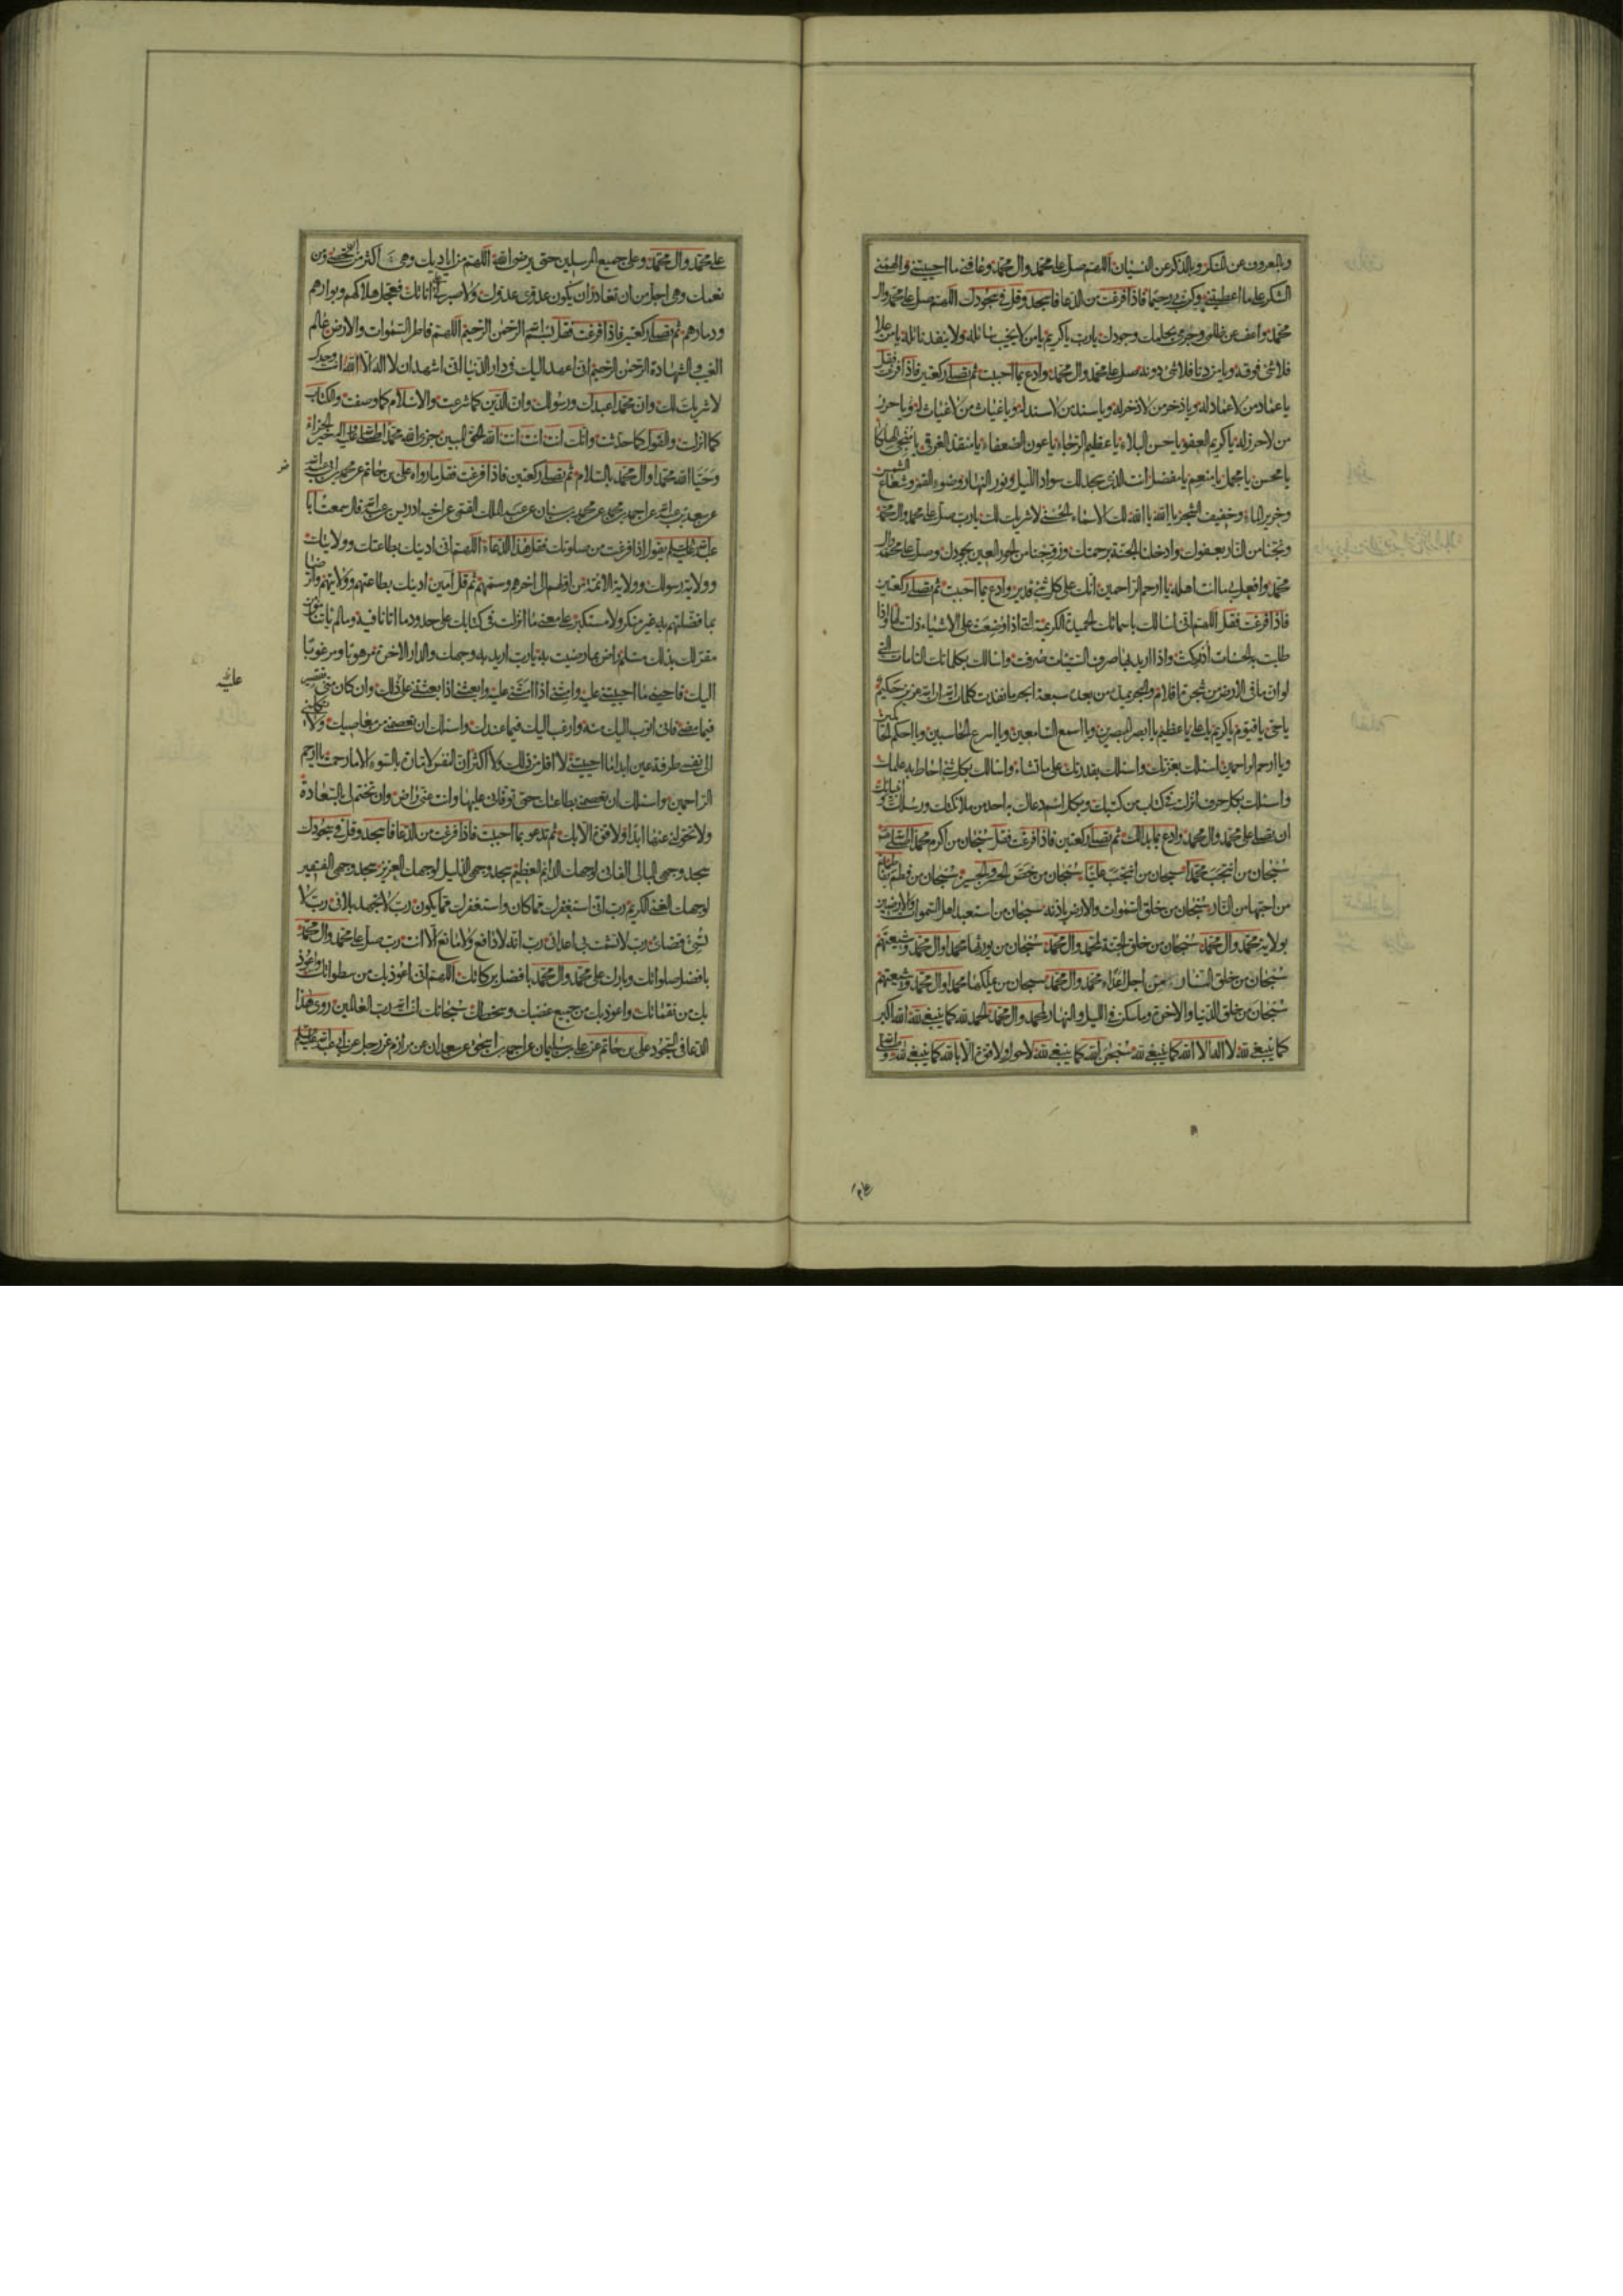 وبالمعروف عن المنكر وبالذكر عن النسيان اللهم صل على محمد وال محمد وعافني ما احييتني والهمني
الشكر على ما اعطيتني وكن بي رحيما فاذا فرغت من الدعا فاسجد وقل في سجودك اللهم صل على محمد وال
محمد واعف عن ظلمي وجرمي بحلمك وجودك يارب ياكريم يا من لا يخيب سائله ولا ينفد نائله يا من علا
فلا شئ فوقه ويا من دنا فلا شئ دونه صل على محمد وال محمد وادع بما احببت ثم تصلي ركعتين فاذا فرغت فقل
يا عماد من لا عماد له ويا ذخر من لا ذخر له ويا سند من لا سند له ويا غياث من لا غياث له ويا حرز
من لا حرز له يا كريم العفو يا حسن البلاء يا عظيم الرخاء يا عون الضعفاء يا منقذ الغرقى يا منجي الهلكى
يا محسن يا مجمل يا منعم يا مفضل انت الذي سجد لك سواد الليل ونور النهار وضوء القمر وشعاع الشمس
وخرير الماء وحفيف الشجر يا الله يا الله لك الاسماء الحسنى لا شريك لك يارب صل على محمد وال محمد
ونجنا من النار بعفوك وادخلنا الجنة برحمتك وزوجنا من الحور العين بجودك وصل على محمد وال
محمد وافعل بي ما انت اهله يا ارحم الراحمين انك على كل شئ قدير وادع بما احببت ثم تصلي ركعتين
فاذا فرغت فقل اللهم اني اسالك باسمائك الحميدة الكريمة التي اذا وضعت على الاشياء ذلت لها واذا
طلبت بها الحسنات ادركت واذا اريد بها صرف السيئات صرفت واسالك بكلماتك التامات التي
لو ان ما في الارض من شجرة اقلام والبحر يمده من بعده سبعة ابحر ما نفدت كلمات الله ان الله عزيز حكيم
يا حي يا قيوم يا كريم يا علي يا عظيم يا ابصر المبصرين ويا اسمع السامعين ويا اسرع الحاسبين ويا احكم الحاكمين
ويا ارحم الراحمين اسئلك بعزتك واسئلك بقدرتك على ما تشاء واسالك بكل شئ احاط به علمك
واسئلك بكل حرف انزلته في كتاب من كتبك وبكل اسم دعاك به احد من ملائكتك ورسلك وانبيائك
ان تصلي على محمد وال محمد وادع بما بدا لك ثم تصلي ركعتين فاذا فرغت فقل سبحان من اكرم محمدا
سبحان من انتجب محمدا سبحان من انتجب عليا سبحان من خص الحسن والحسين سبحان من فطم بفاطمة
من احبها من النار سبحان من خلق السموات والارض باذنه سبحان من استعبد اهل السموات والارضين
بولاية محمد وال محمد سبحان من خلق الجنة لمحمد وال محمد سبحان من يورثها محمدا وال محمد وشيعتهم
سبحان من خلق النار من اجل اعداء محمد وال محمد سبحان من يملكها محمدا وال محمد وشيعتهم
سبحان من خلق الدنيا والاخرة وما سكن في الليل والنهار لمحمد وال محمد الحمد لله كما ينبغي لله الله اكبر
كما ينبغي لله لا اله الا الله كما ينبغي لله سبحان الله كما ينبغي لله لا حول ولا قوة الا بالله كما ينبغي لله وصلى الله
على محمد وال محمد وعلى جميع المرسلين حتى يرضى الله اللهم من اياديك وهي اكثر من ان تحصى ومن
نعمك وهي اجل من ان تغادر ان يكون عدوي عدوك ولا صبر لي على اناتك فعجل هلاكهم وبوارهم
ودمارهم ثم تصلي ركعتين فاذا فرغت فقل بسم الله الرحمن الرحيم اللهم فاطر السموات والارض عالم
الغيب والشهادة الرحمن الرحيم اني اعهد اليك في دار الدنيا اني اشهد ان لا اله الا الله انت وحدك
لا شريك لك وان محمدا عبدك ورسولك وان الدين كما شرعت والاسلام كما وصفت والكتاب
كما انزلت والقول كما حدثت وانك انت انت انت الله الحق المبين جزى الله محمدا صلى الله عليه واله خير الجزاء
وحيا الله محمدا وال محمد بالسلام ثم تصلي ركعتين فاذا فرغت فقل ما رواه علي بن حاتم عن محمد بن ابي عبد الله
عن سعد بن عبد الله عن احمد بن محمد عن محمد بن سنان عن عبد الملك القمي عن اخيه ادريس بن عبد الله قال سمعت ابا
عبد الله عليه السلام يقول اذا فرغت من صلوتك فقل هذا الدعاء اللهم اني ادينك بطاعتك وولايتك
وولاية رسولك وولاية الائمة من اولهم الى اخرهم وسمهم ثم قل امين ادينك بطاعتهم وولايتهم والرضا
بما فضلتهم به غير منكر ولا مستكبر على معنى ما انزلت في كتابك على حدود ما اتانا فيه وما لم ياتنا مؤمن
مقر لك بذلك مسلم راض بما رضيت به يارب اريد به وجهك والدار الاخرة مرهوبا ومرغوبا
اليك فاحيني ما احييتني عليه وامتني اذا امتني عليه وابعثني اذا بعثتني على ذلك وان كان مني تقصير
فيما مضى فاني اتوب اليك منه وارغب اليك فيما عندك واسئلك ان تعصمني من معاصيك ولا تكلني
الى نفسي طرفة عين ابدا ما احييتني لا اقل من ذلك ولا اكثر ان النفس لامارة بالسوء الا ما رحمت يا ارحم
الراحمين واسئلك ان تعصمني بطاعتك حتى توفاني عليها وانت عني راض وان تختم لي بالسعادة
ولا تحولني عنها ابدا ولا قوة الا بك ثم تدعو بما احببت فاذا فرغت من الدعا فاسجد وقل في سجودك
سجد وجهي البالي الفاني لوجهك الدائم العظيم سجد وجهي الذليل لوجهك العزيز سجد وجهي الفقير
لوجهك الغني الكريم رب اني استغفرك مما كان واستغفرك مما يكون رب لا تجهد بلائي رب لا
تسئ قضائي رب لا تشمت بي اعدائي رب انه لا دافع ولا مانع الا انت رب صل على محمد وال محمد
بافضل صلواتك وبارك على محمد وال محمد بافضل بركاتك اللهم اني اعوذ بك من سطواتك واعوذ
بك من نقماتك واعوذ بك من جميع غضبك وسخطك سبحانك انت الله رب العالمين روى هذا
الدعا في السجود علي بن حاتم عن علي بن سليمان عن احمد بن اسحق عن سعدان عن مرازم عن رجل عن ابي عبد الله عليه السلام
عليه